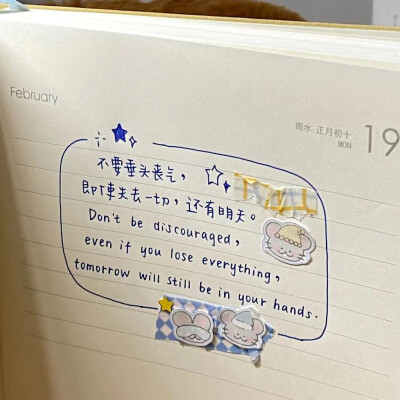 February
雨水 正月初十
MON
19
不要垂头丧气，
即使失去一切，还有明天。
Don't be discouraged,
even if you lose everything,
tomorrow will still be in your hands.